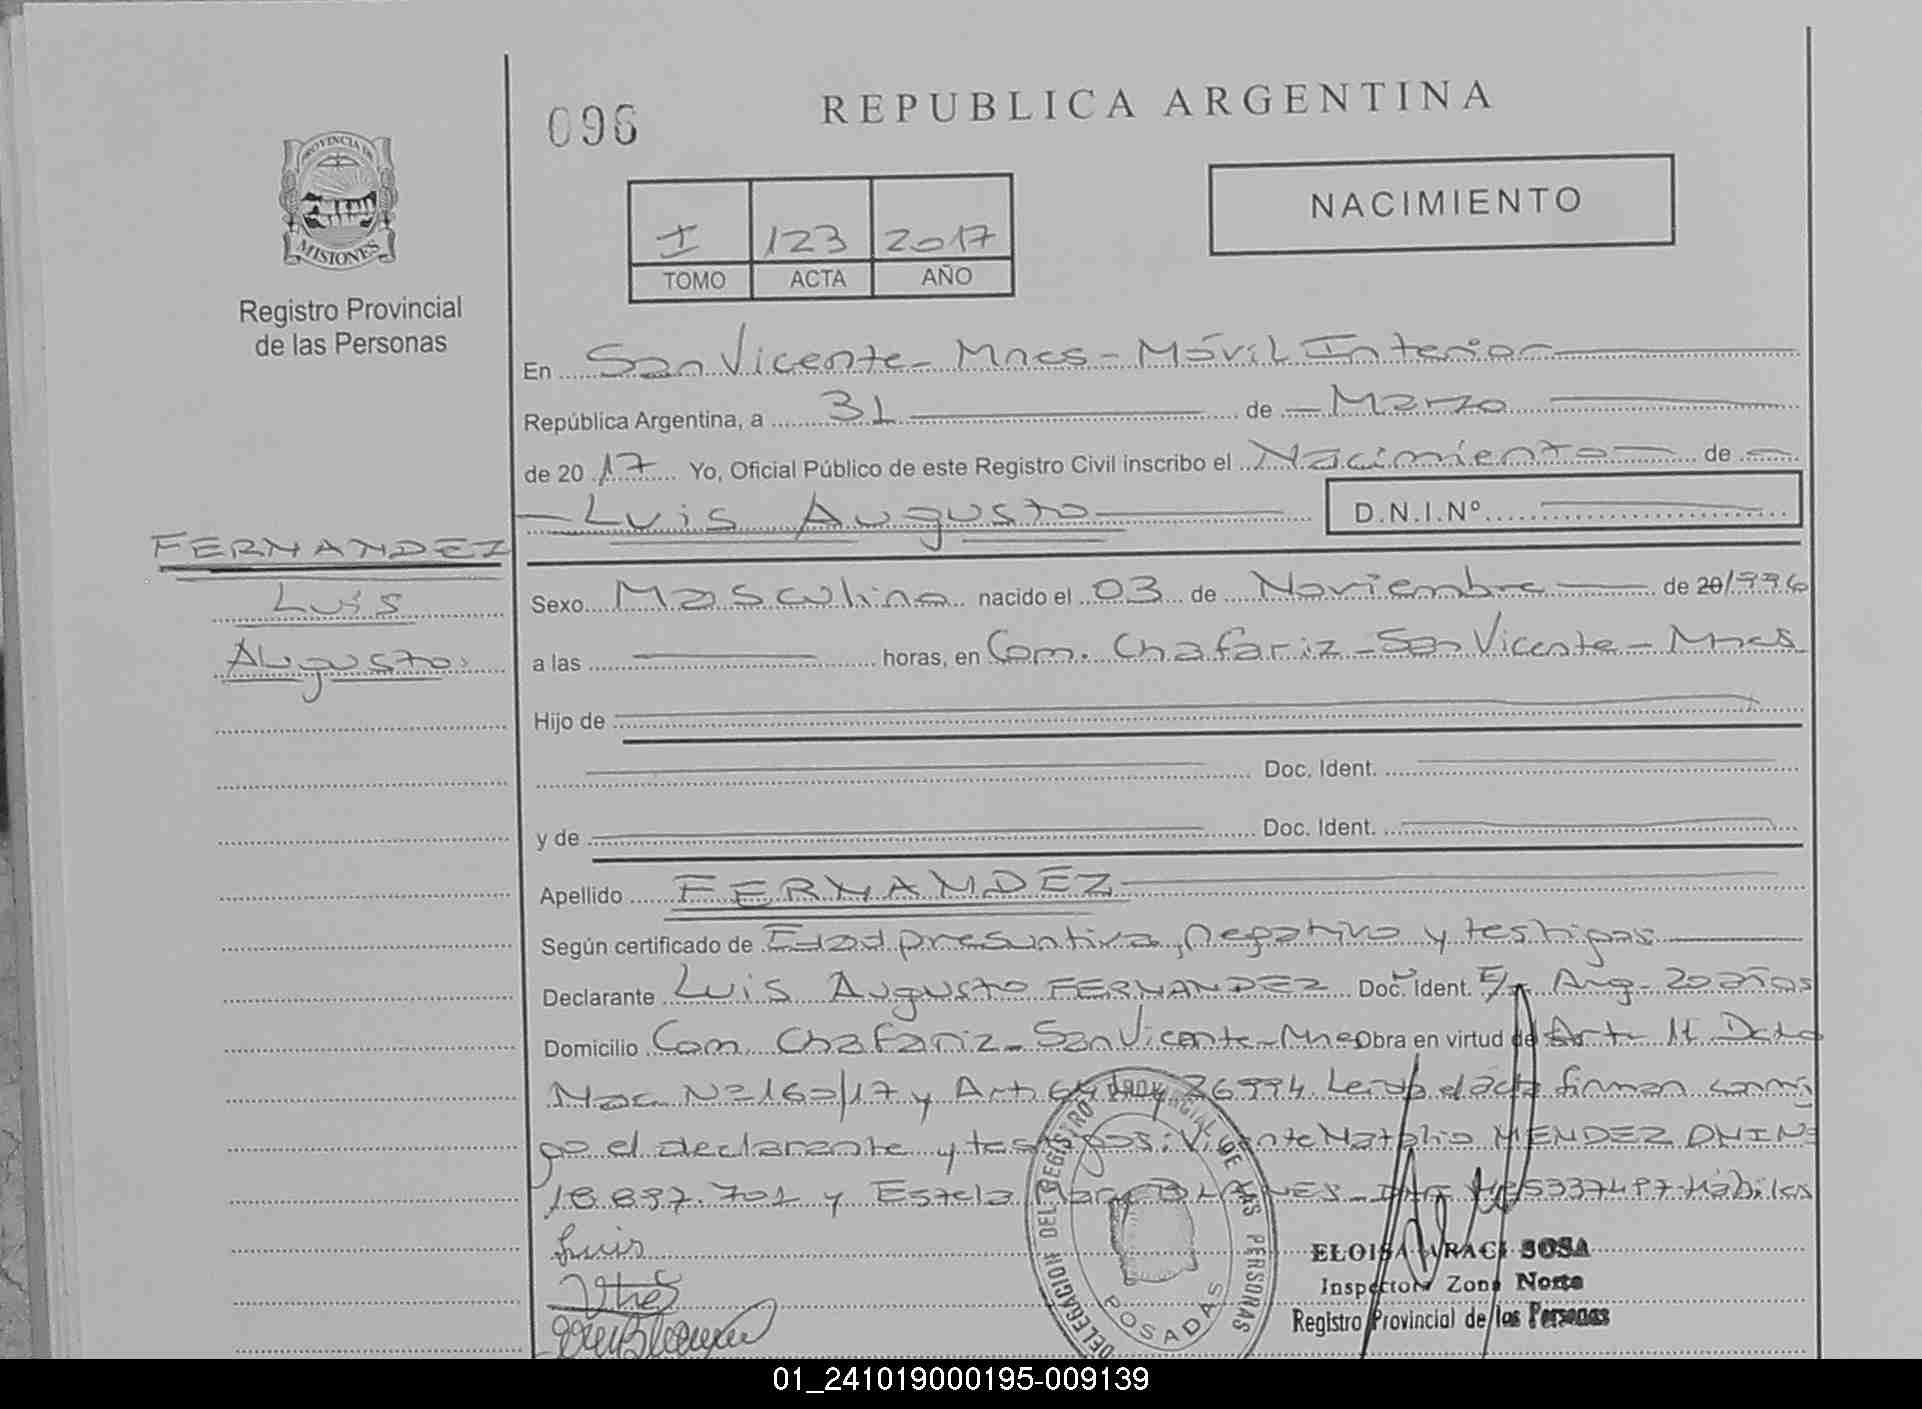 096
REPUBLICA ARGENTINA
PROVINCIA DE
MISIONES
Registro Provincial
de las Personas
I 123 2017
TOMO ACTA AÑO
NACIMIENTO
En San Vicente - Mnes - Móvil Interior
República Argentina, a 31 de Marzo
de 2017 Yo, Oficial Público de este Registro Civil inscribo el Nacimiento de
Luis Augusto D.N.I.Nº
FERNANDEZ
Luis
Augusto
Sexo Masculino nacido el 03 de Noviembre de 20/1996
a las horas, en Com. Chafariz - San Vicente - Mnes
Hijo de
Doc. Ident.
y de Doc. Ident.
Apellido FERNANDEZ
Según certificado de Edad presuntiva, negativo y testigos
Declarante Luis Augusto FERNANDEZ Doc. Ident. Arg - 20 años
Domicilio Com. Chafariz - San Vicente - Mnes Obra en virtud de Art. 11 Dcto
Nac Nº 160/17 y Art 64 Ley 26994. Leida el acta firman conmi
go el declarante y testigos: Vicente Natalio MENDEZ DNI Nº
18.837.701 y Estela BLANES - Hábiles
Luis
DELEGACION DEL REGISTRO PROVINCIAL DE LAS PERSONAS
POSADAS
ELOISA ARACI SOSA
Inspectora Zona Norte
Registro Provincial de las Personas
01_241019000195-009139